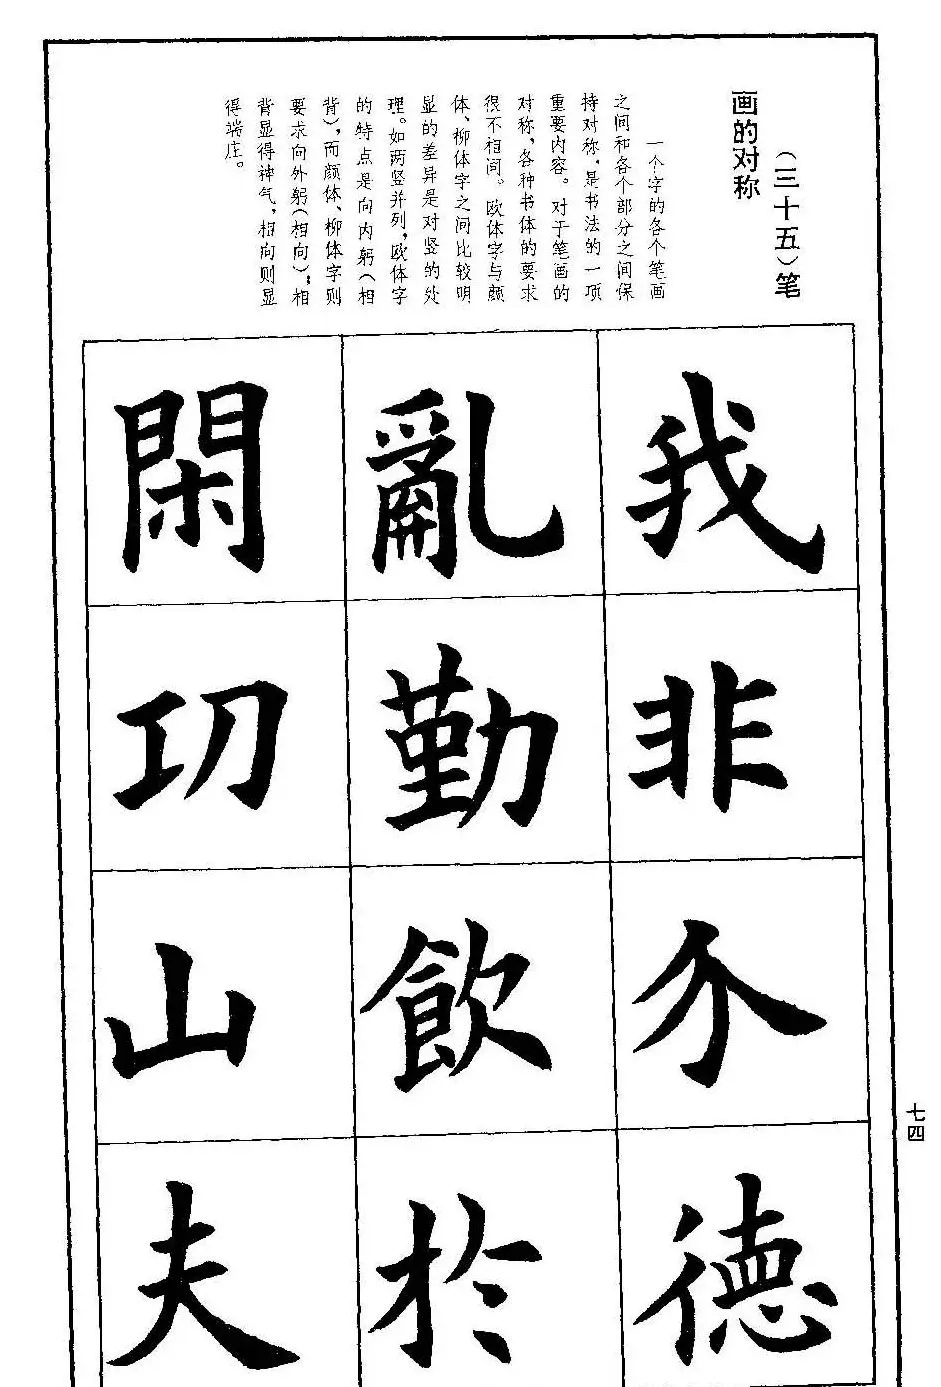 （三十五）笔
画的对称
一个字的各个笔画
之间和各个部分之间保
持对称，是书法的一项
重要内容。对于笔画的
对称，各种书体的要求
很不相同。欧体字与颜
体、柳体字之间比较明
显的差异是对竖的处
理。如两竖并列，欧体字
的特点是向内躬（相
背），而颜体、柳体字则
要求向外躬（相向）；相
背显得神气，相向则显
得端庄。
我非介德
亂勤飲於
閑㓛山夫
七四